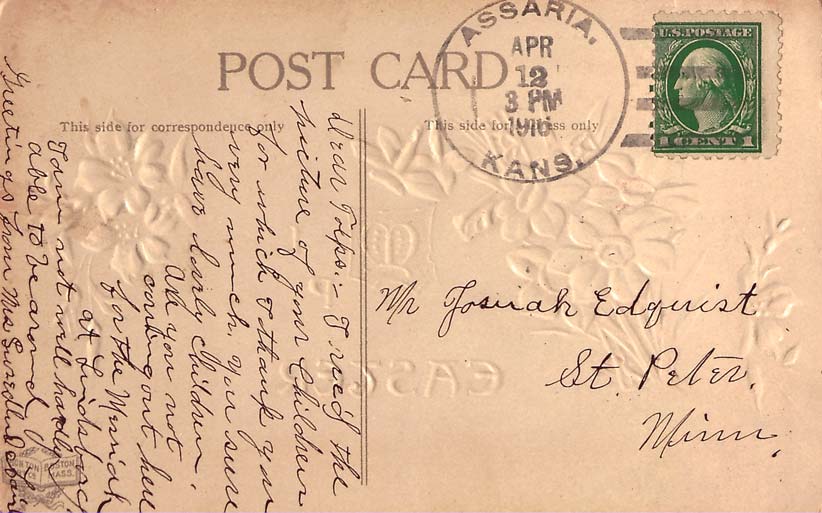 POST CARD
This side for correspondence only
This side for address only
ASSARIA,
APR
12
3 PM
KANS.
U.S. POSTAGE
1 CENT 1
Dear Folks:- I rec'd the
picture of your Children
for which I thank you
very much. You sure
have lovely Children.
Are you not
coming out here
for the Messiah
at Lindsborg
I am not well hardly
able to be around
Greetings from Mrs
Mr Josuah Edquist
St. Peter,
Minn.
EASTER
BOSTON
MASS.